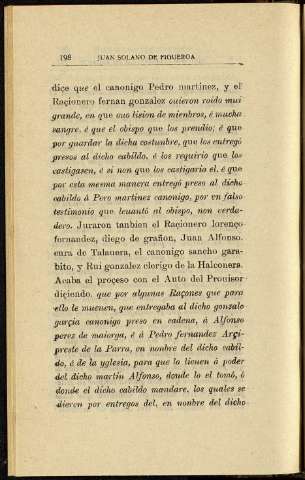 198 JUAN SOLANO DE FIGUEROA
diçe que el canonigo Pedro martinez, y el
Raçionero fernan gonzalez ouieron roido mui
grande, en que ouo lision de miembros, é mucha
sangre. é que el obispo que los prendio; é que
por guardar la dicha costunbre, que los entregó
presos al dicho cabildo, é los requirio que los
castigasen, é si non que los castigaria el. é que
por esta mesma manera entregó preso al dicho
cabildo á Pero martinez canonigo, por en falso
testimonio que leuantó al obispo, non verda-
dero. Juraron tanbien el Raçionero lorenço
fernandez, diego de grañon, Juan Alfonso.
cura de Talauera, el canonigo sancho gara-
bito, y Rui gonzalez clerigo de la Halconera.
Acaba el proceso con el Auto del Prouisor
diçiendo, que por algunas Raçones que para
ello te mueuen, que entregaba al dicho gonsalo
garçia canonigo preso en cadena, á Alfonso
perez de maiorga, é á Pedro fernandez Arçi-
preste de la Parra, en nonbre del dicho cabil-
do, é de la yglesia, para que lo tienen á poder
del dicho martin Alfonso, donde lo el tomó, ò
donde el dicho cabildo mandare, los quales se
dieron por entregos del, en nonbre del dicho